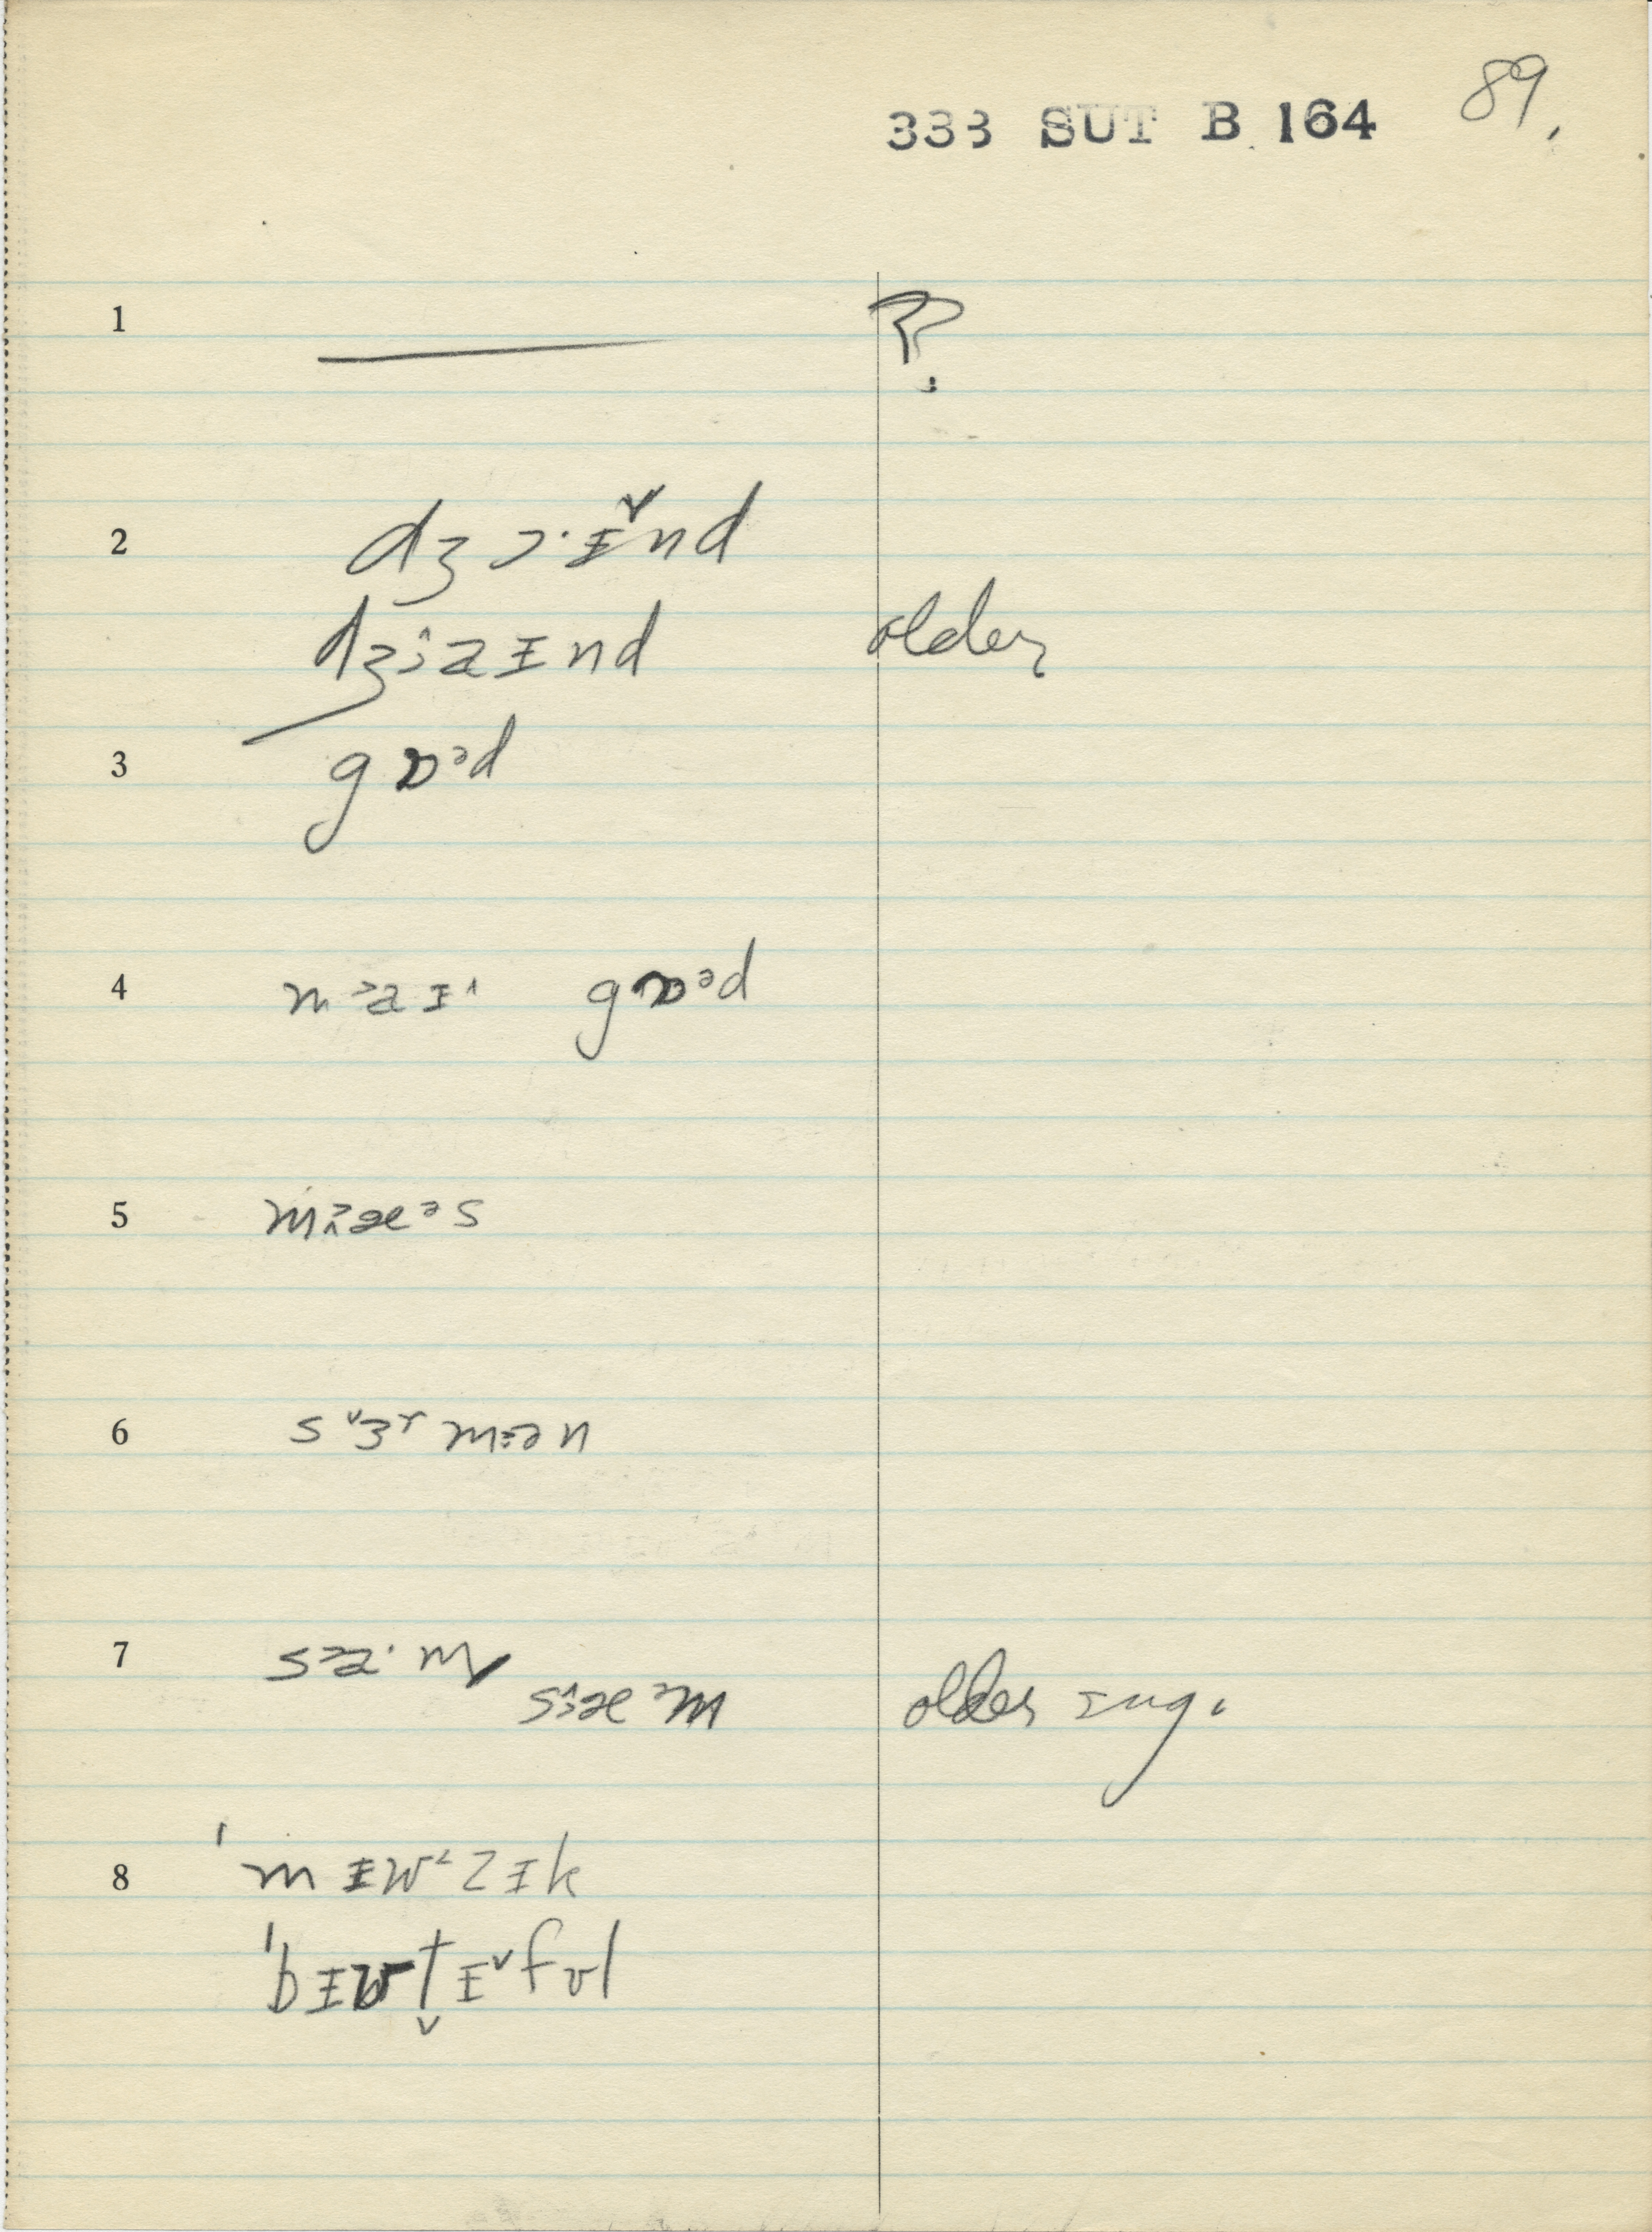 333 SUT B 164 89.
1 ?
2 dʒɔ·ɪ˅nd
dʒɔ^aɪnd older
3 gɒᵊd
4 mɔaɪ˄ gɒᵊd
5 mæᵊs
6 s˅ɜʳmən
7 sa·m
sæᵊm older sug.
8 ˈmɪʊzɪk
ˈbɪʊt̬ɪ˅fʊl